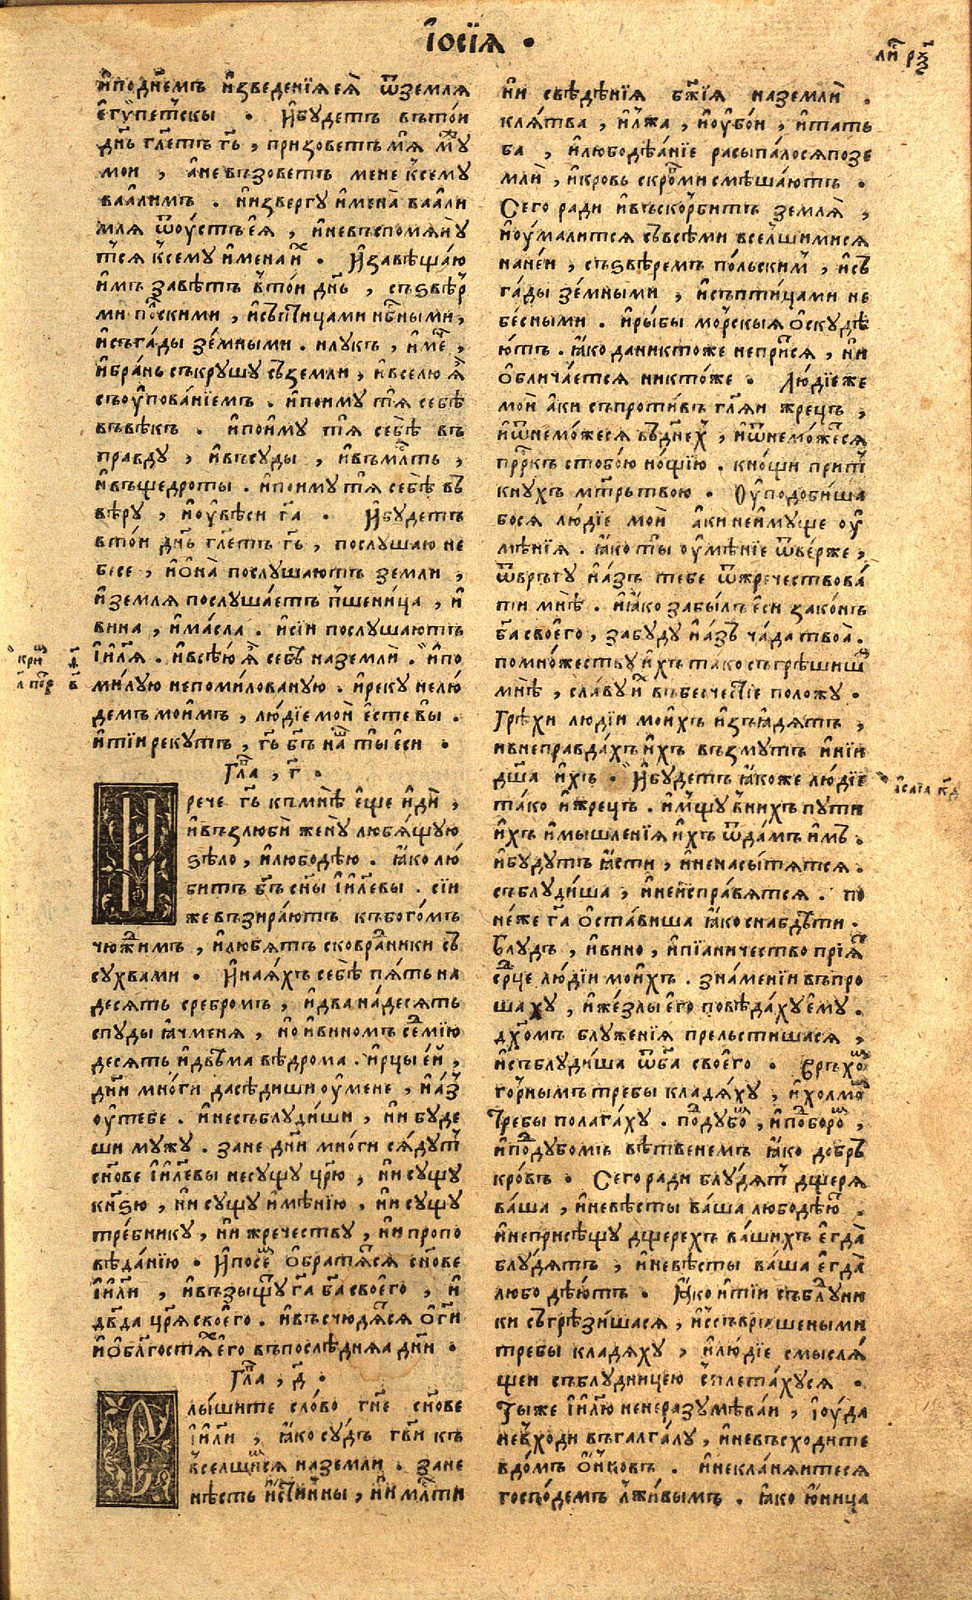 І҆осїѧ .
ли́ рѯ҃
и҆поднемъ и҆зведенїѧ еѧ̀ ѿземлѧ
е҆гѵпетскы . И҆будетъ вътои
дн҃ь гл҃етъ г҃ь , призоветъ мѧ мꙋ
мои , аневъзоветъ мене ксемꙋ
ваалимъ . и҆извергꙋ и҆мена̀ ваали
млѧ ѿоу҆стъ еѧ̀ , и҆невъспомѧнꙋ
тсѧ ксемꙋ и҆мена и҆х . И҆завѣщаю
и҆мъ завѣтъ втои дн҃ь , съѕвѣр
ми пол҆скими , и҆съптицами нб҃ными ,
и҆съгады земными . илꙋкъ , и҆мечь ,
и҆брань съкрꙋшꙋ сѿземли , и҆вселю ѧ
съоу҆пованїемъ . и҆поимꙋ тѧ себѣ
въвѣкъ . и҆поимꙋ тѧ себѣ въ
правдꙋ , и҆въсꙋды , и҆въмл҃ть ,
и҆въщедроты . и҆поимꙋ тѧ себѣ въ
вѣрꙋ , и҆оу҆вѣси г҃а . И҆бꙋдетъ
втои дн҃ь гл҃етъ г҃ь , послꙋшаю не
бесе , и҆ѻна послꙋшаютъ земли ,
и҆землѧ послꙋшаетъ пшеница , и҆
вина , и҆масла . и҆сїи послꙋшаютъ
і҆и҃лѧ . и҆всѣю ѧ себѣ наземлѝ . и҆по
милꙋю непомилованꙋю . и҆рекꙋ нелю
демъ моимъ , людїе моѝ е҆сте вы .
и҆тїи рекꙋтъ , г҃ь б҃ъ нашъ ты еси .
Гл҃а , г҃ .
И рече г҃ь къмнѣ еще и҆дѝ ,
и҆възлюби̑ женꙋ любѧщꙋю
ѕѣло , и҆любодѣю . ꙗко лю
битъ б҃ъ сн҃ы і҆и҃левы . сїи
жевъзираютъ къбогомъ
чюжимъ , и҆любѧтъ сковраники съ
сꙋхвами . И҆наѧхъ себѣ пѧть на
десѧть сребромъ , и҆два надесѧть
спꙋды ꙗчменѧ , и҆о и҆виномъ семїю
десѧть и҆двѣма вѣдрома . и҆рцы ей ,
дн҃и многи дасѣдиши оу҆мене , и҆аз
оу҆тебе . и҆несъблꙋдиши , нибꙋде
ши мꙋжꙋ . зане дн҃и многи сѧдꙋт
сн҃ове і҆и҃левы несꙋщꙋ цр҃ю , нисꙋщꙋ
кн҃ѕю , нисꙋщꙋ и҆мѣнїю , нисꙋщꙋ
требникꙋ , нижречествꙋ , нипропо
вѣданїю . И҆посем обратѧтсѧ сн҃ове
і҆и҃ли , и҆възыщꙋт г҃а б҃а своего , и҆
дв҃да цр҃ѧ своего . и҆въсчюдѧтсѧ ѻг҃и
и҆ѻблагостех его въпослѣднѧѧ дн҃и .
Гл҃а , д҃ .
Слышите слово гн҃е сн҃ове
і҆и҃ли , ꙗко сꙋдъ гв҃и къ
вселшимсѧ наземли . зане
нѣсть и҆стинны , нимл҃ти
ни свѣдѣнїѧ бж҃їѧ наземлѝ .
клѧтва , и҆лжа , и҆оу҆бои , и҆татъ
ба , и҆любодѣанїе расыпалосѧпозе
млѝ , и҆кровь скровми смѣшаютъ .
Сего ради и҆въскорбитъ землѧ̀ ,
и҆оу҆малитсѧ съвсѣми вселшимисѧ
наней , съѕвѣремъ польским , и҆съ
гады земными , и҆съптицами не
бесными . и҆рыбы морскыѧ ѻскꙋдѣ
ютъ . ꙗко даниктоже неприсѧ , ни
ѻбличаетсѧ никтоже . Людїеже
мои аки съпротивъ гл҃ѧи жрецъ ,
и҆ѿнеможесѧ въднех , и҆ѿнеможесѧ
пр҃ркъ стобою нощїю . кнощи прит
кнꙋхъ мт҃рьтвою . Оу҆подобиша
босѧ людїе мои аки неимꙋще оу҆
мѣнїѧ . ꙗко ты оу҆мѣнїе ѿверже ,
ѿврьгꙋ и҆азъ тебе ѿжречествова
ти мнѣ . и҆ꙗко забылъ еси законъ
б҃а своего , забꙋдꙋ и҆азъ чада твоѧ̀ .
помножествꙋ и҆хъ тако съгрѣшиша
мнѣ , славꙋ их въбесчестїе положꙋ .
Грѣхи людїи моихъ и҆зъꙗдѧтъ ,
ивнеправдахъ ихъ възмꙋтъ и҆ нїи
дш҃а ихъ . И҆бꙋдетъ ꙗкоже людїе
тако и҆жрецъ . и҆мщꙋ внихъ пꙋти
ихъ и҆мышленїѧ ихъ ѿдамъ имъ .
и҆бꙋдꙋтъ ꙗсти , и҆ненасытѧтсѧ .
съблꙋдиша , и҆неисправѧтсѧ . по
неже г҃а ѻставиша ꙗко снабдѣти .
Блꙋдъ , и҆вино , и҆пїаничество прїѧ
срд҃це людїи моихъ . знаменїи въпро
шахꙋ , и҆жезлы его повѣдахꙋ емꙋ .
дх҃омъ блꙋженїѧ прельстишасѧ ,
и҆съблꙋдиша ѿб҃а своего . Връхо
горнымъ требы кладѧхꙋ , и҆холмо
требы полагахꙋ . подꙋбом , и҆поборо ,
и҆подꙋбомъ вѣтвенемъ ꙗко добръ
кровъ . Сего ради блꙋдѧт дщерѧ
ваша , и҆невѣсты ваша любодѣю .
и҆неприсѣщꙋ дщерехъ вашихъ егда̀
блꙋдѧтъ , и҆невѣсты ваша егда̀
любо дѣютъ . Ꙗко и҆тїи съблꙋдни
ки съгрѣзишасѧ , и҆съсъвръшеными
требы кладѧхꙋ , и҆людїе смыслѧ
щеи съблꙋдницею сплетахꙋсѧ .
Тыже і҆и҃лю ненеразꙋмѣваи , і҆оуда
невходи въгалгалꙋ , и҆невъсходите
вдомъ ѻнковъ . и҆некланѧитесѧ
господемъ лживымъ . ꙗко юница